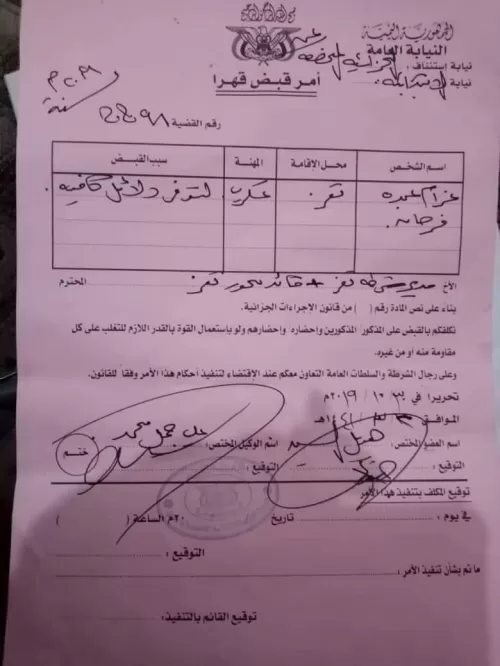 الجمهورية اليمنية
النيابة العامة
نيابة إستئناف :
نيابة الابتدائية
أمر قبض قهرا
رقم القضية
اسم الشخص محل الإقامة المهنة سبب القبض
عزام عبده فرحان تعز عسكري لتوفر دلائل كافية
الأخ مدير شرطة تعز + قائد محور تعز المحترم
بناءً على نص المادة رقم ( ) من قانون الإجراءات الجزائية.
نكلفكم بالقبض على المذكور المذكورين واحضاره وإحضارهم ولو بإستعمال القوة بالقدر اللازم للتغلب على كل
مقاومة منه أو من غيره.
وعلى رجال الشرطة والسلطات العامة التعاون معكم عند الإقتضاء لتنفيذ أحكام هذا الأمر وفقاً للقانون.
تحريرا في ٣٠ / ١٢ / ٢٠١٩م
الموافق
اسم العضو المختص: اسم الوكيل المختص : محمد
التوقيع : التوقيع : ختم
توقيع المكلف بتنفيذ هذا الأمر
في يوم : تاريخ ٢٠م الساعة ( )
التوقيع :
ما تم بشأن تنفيذ الأمر :
توقيع القائم بالتنفيذ: